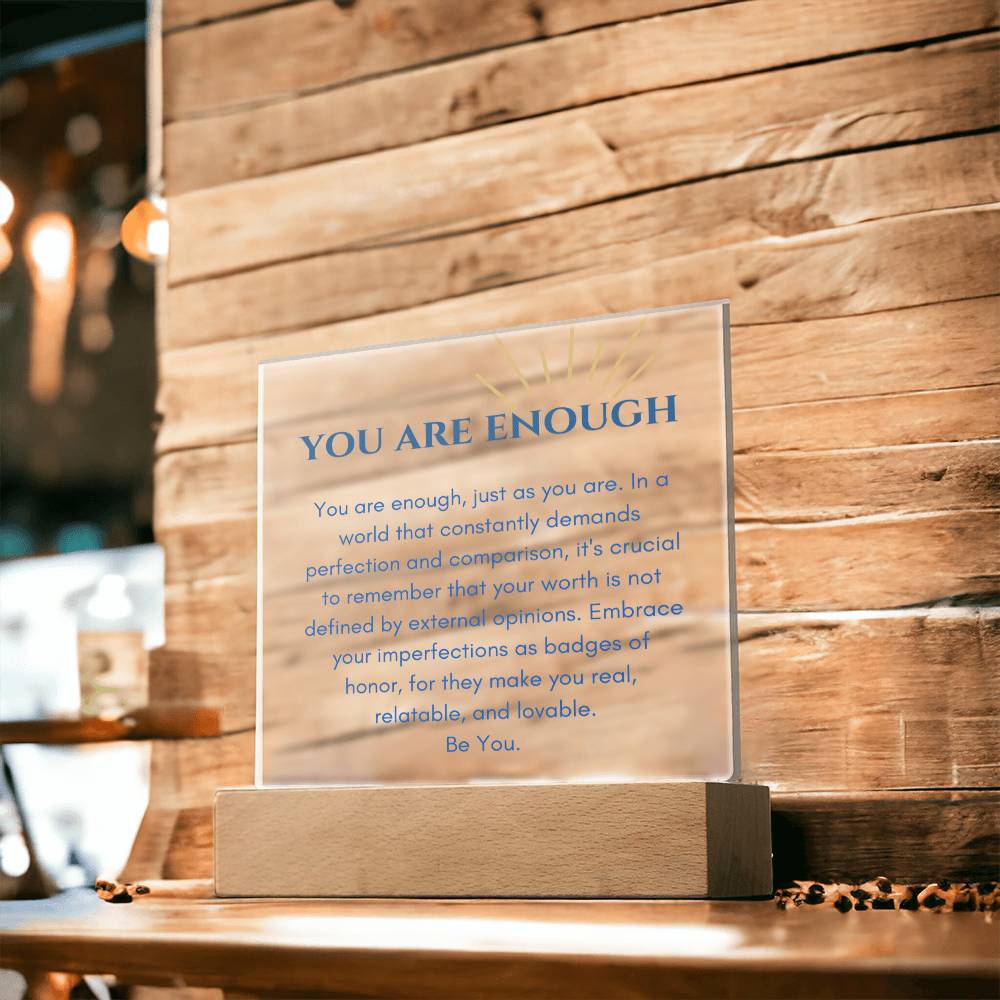 YOU ARE ENOUGH
You are enough, just as you are. In a
world that constantly demands
perfection and comparison, it's crucial
to remember that your worth is not
defined by external opinions. Embrace
your imperfections as badges of
honor, for they make you real,
relatable, and lovable.
Be You.